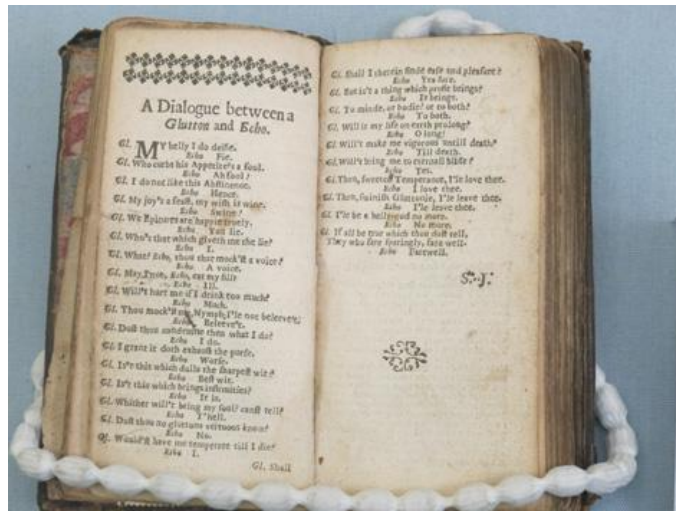 A Dialogue between a
Glutton and Echo.
Gl. MY belly I do deifie.
Echo Fie.
Gl. Who curbs his Appetite's a fool.
Echo Ah fool!
Gl. I do not like this Abstinence.
Echo Hence.
Gl. My joy's a feast, my wish is wine.
Echo Swine!
Gl. We Epicures are happie truely.
Echo You lie.
Gl. Who's that which giveth me the lie?
Echo I.
Gl. What? Echo, thou that mock'st a voice?
Echo A voice.
Gl. May I not, Echo, eat my fill?
Echo Ill.
Gl. Will't hurt me if I drink too much?
Echo Much.
Gl. Thou mock'st me, Nymph; I'le not beleeve't;
Echo Beleeve't.
Gl. Dost thou condemne then what I do?
Echo I do.
Gl. I grant it doth exhaust the purse.
Echo Worse.
Gl. Is't this which dulls the sharpest wit?
Echo Best wit.
Gl. Is't this which brings infirmities?
Echo It is.
Gl. Whither will't bring my soul? canst tell?
Echo T'hell.
Gl. Dost thou no gluttons vertuous know?
Echo No.
Gl. Would'st have me temperate till I die?
Echo I.
Gl. Shall
Gl. Shall I therein finde ease and pleasure?
Echo Yea sure.
Gl. But is't a thing which profit brings?
Echo It brings.
Gl. To minde, or bodie? or to both?
Echo To both.
Gl. Will it my life on earth prolong?
Echo O long!
Gl. Will't make me vigorous untill death?
Echo Till death.
Gl. Will't bring me to eternall blisse?
Echo Yes.
Gl. Then, sweetest Temperance, I'le love thee.
Echo I love thee.
Gl. Then, swinish Gluttonie, I'le leave thee.
Echo I'le leave thee.
Gl. I'le be a belly-god no more.
Echo No more.
Gl. If all be true which thou dost tell,
They who fare sparingly, fare well.
Echo Farewell.
S. J.